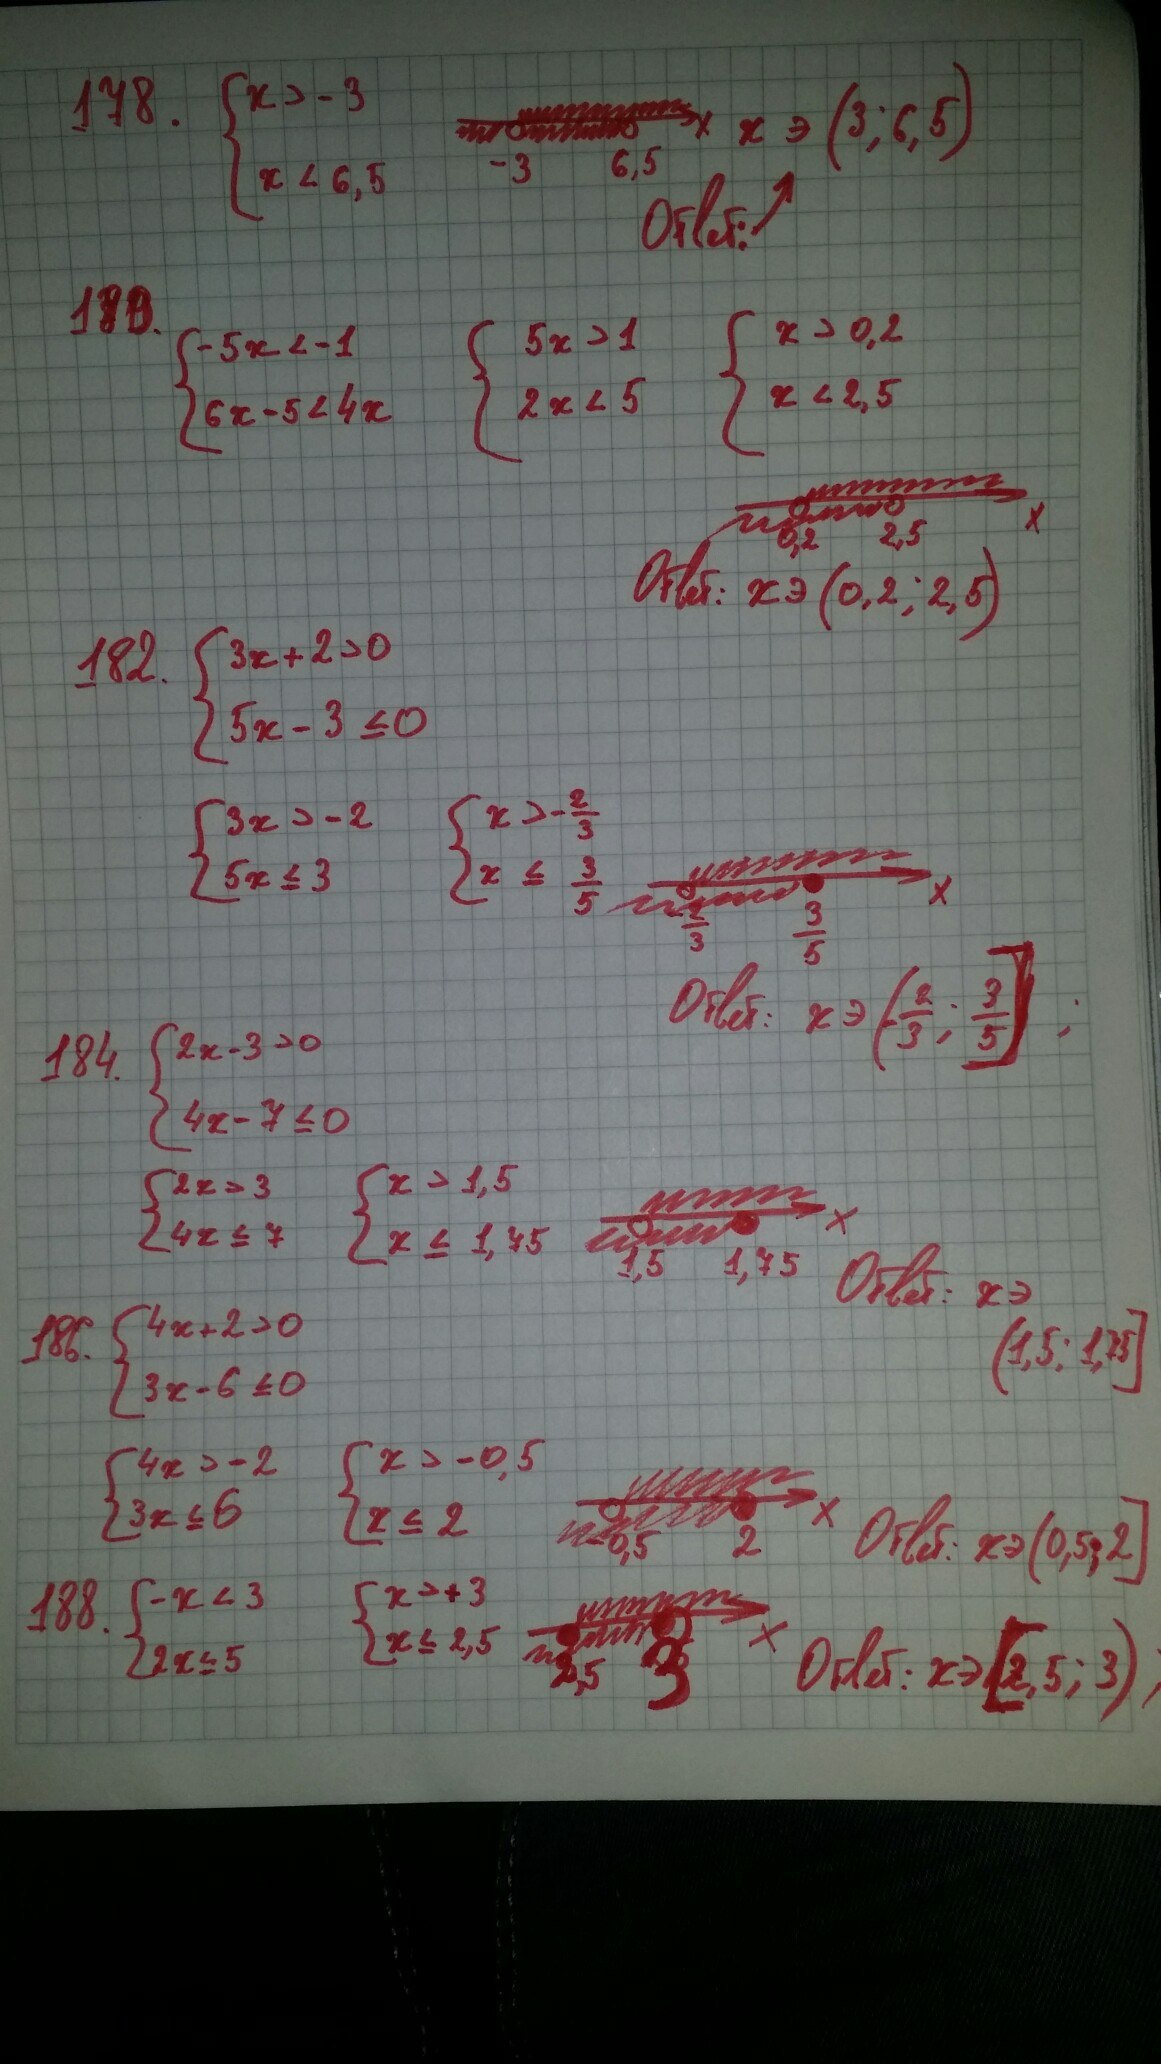 178. { x > -3    -3    6,5    x    x э (3; 6,5)
x < 6,5
Ответ:
180.
{ -5x < -1    { 5x > 1    { x > 0,2
6x - 5 < 4x    2x < 5    x < 2,5
0,2    2,5    x
Ответ: x э (0,2; 2,5)
182. { 3x + 2 > 0
5x - 3 ≤ 0
{ 3x > -2    { x > -2/3
5x ≤ 3    x ≤ 3/5    -2/3    3/5    x
Ответ: x э (-2/3; 3/5] ;
184. { 2x - 3 > 0
4x - 7 ≤ 0
{ 2x > 3    { x > 1,5
4x ≤ 7    x ≤ 1,75    1,5    1,75    x
Ответ: x э
(1,5; 1,75]
186. { 4x + 2 > 0
3x - 6 ≤ 0
{ 4x > -2    { x > -0,5
3x ≤ 6    x ≤ 2    -0,5    2    x    Ответ: x э (0,5; 2]
188. { -x < 3    { x > +3
2x ≤ 5    x ≤ 2,5    2,5    3    x    Ответ: x э [2,5; 3) ;